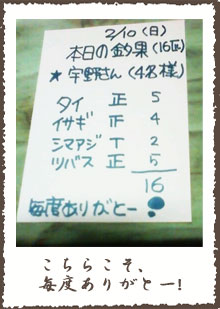 2/10(日)
本日の釣果(16匹)
★宇野さん(4名様)
タイ 正 5
イサギ 正 4
シマアジ T 2
ツバス 正 5
16
毎度ありがとー!
こちらこそ、
毎度ありがとー!